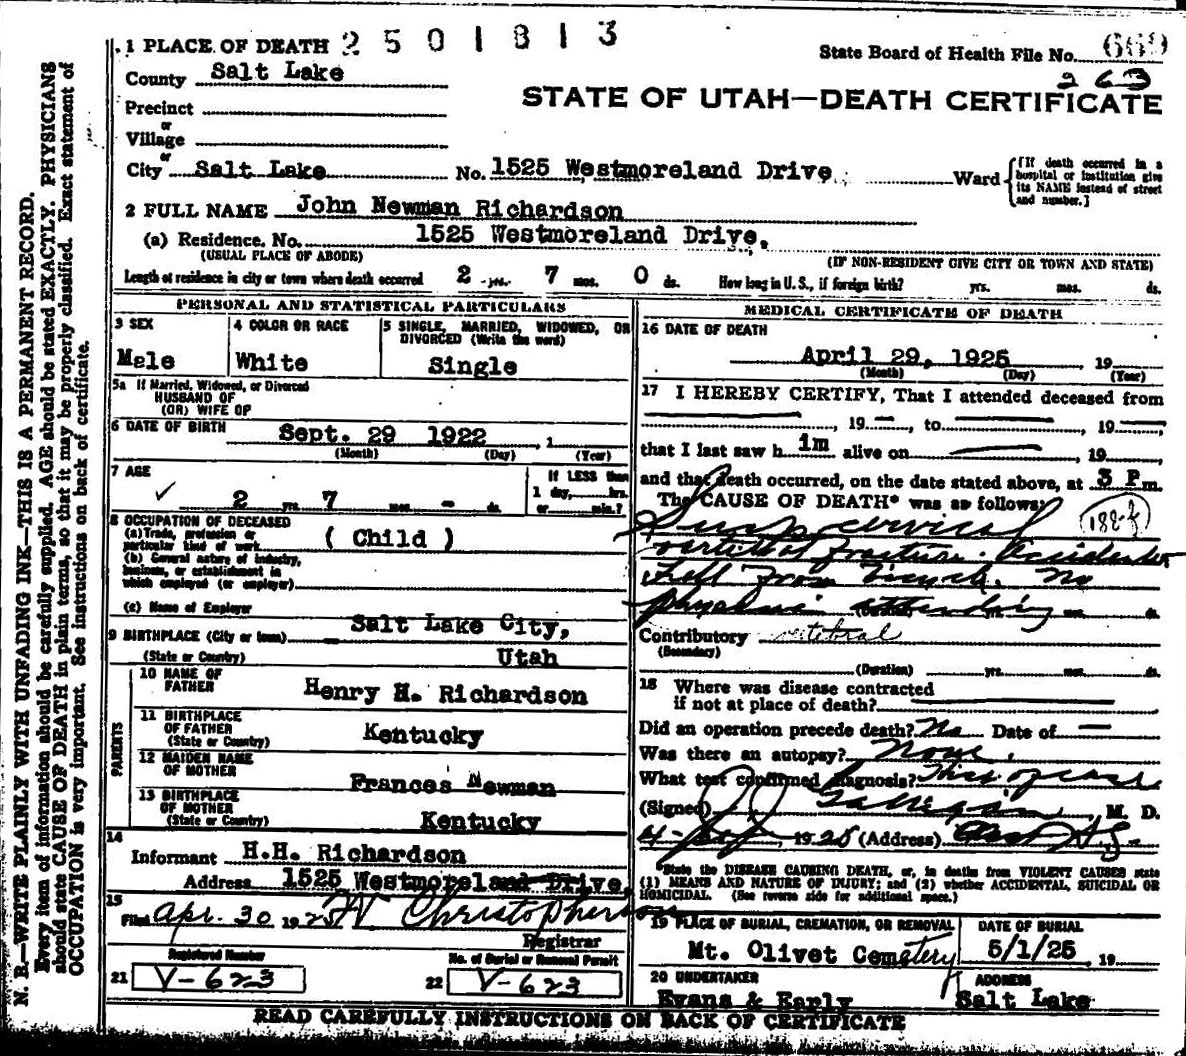 1 PLACE OF DEATH 2501813
State Board of Health File No. 669
263
County Salt Lake
STATE OF UTAH—DEATH CERTIFICATE
Precinct
or
Village
or
City Salt Lake No. 1525 Westmoreland Drive Ward
[If death occurred in a
hospital or institution give
its NAME instead of street
and number.]
2 FULL NAME John Newman Richardson
(a) Residence. No. 1525 Westmoreland Drive,
(USUAL PLACE OF ABODE) (IF NON-RESIDENT GIVE CITY OR TOWN AND STATE)
Length of residence in city or town where death occurred 2 yrs. 7 mos. 0 ds. How long in U. S., if foreign birth? yrs. mos. ds.
PERSONAL AND STATISTICAL PARTICULARS
3 SEX
Male
4 COLOR OR RACE
White
5 SINGLE, MARRIED, WIDOWED, OR
DIVORCED (Write the word)
Single
5a If Married, Widowed, or Divorced
HUSBAND OF
(OR) WIFE OF
6 DATE OF BIRTH Sept. 29 1922, 1
(Month) (Day) (Year)
7 AGE
2 yrs. 7 mos. - ds.
If LESS than
1 day, hrs.
or min.?
8 OCCUPATION OF DECEASED
(a) Trade, profession or
particular kind of work
( Child )
(b) General nature of industry,
business, or establishment in
which employed (or employer)
(c) Name of Employer
9 BIRTHPLACE (City or town) Salt Lake City,
(State or Country) Utah
PARENTS
10 NAME OF
FATHER
Henry H. Richardson
11 BIRTHPLACE
OF FATHER
(State or Country)
Kentucky
12 MAIDEN NAME
OF MOTHER
Frances Newman
13 BIRTHPLACE
OF MOTHER
(State or Country)
Kentucky
14
Informant H.H. Richardson
Address 1525 Westmoreland Drive,
15
Filed Apr. 30 1925 W Christopherson
Registrar
Registered Number
21 V-623
No. of Burial or Removal Permit
22 V-623
MEDICAL CERTIFICATE OF DEATH
16 DATE OF DEATH
April 29, 1925 19
(Month) (Day) (Year)
17 I HEREBY CERTIFY, That I attended deceased from
, 19 —, to , 19
that I last saw him alive on , 19
and that death occurred, on the date stated above, at 3 P m.
The CAUSE OF DEATH* was as follows:
cervical
fracture. Accidental
Fell From Bicycle. No
physician attending
Contributory vertebral
(Secondary)
(Duration) yrs. mos. ds.
18 Where was disease contracted
if not at place of death?
Did an operation precede death? No Date of —
Was there an autopsy? None.
What test confirmed diagnosis? Hist of case
(Signed) Galligan, M. D.
1925 (Address)
*State the DISEASE CAUSING DEATH, or, in deaths from VIOLENT CAUSES state
(1) MEANS AND NATURE OF INJURY; and (2) whether ACCIDENTAL, SUICIDAL OR
HOMICIDAL. (See reverse side for additional space.)
19 PLACE OF BURIAL, CREMATION, OR REMOVAL
Mt. Olivet Cemetery
DATE OF BURIAL
5/1/25, 19
20 UNDERTAKER
Evans & Early
ADDRESS
Salt Lake
READ CAREFULLY INSTRUCTIONS ON BACK OF CERTIFICATE
N. B.—WRITE PLAINLY WITH UNFADING INK—THIS IS A PERMANENT RECORD.
Every item of information should be carefully supplied. AGE should be stated EXACTLY. PHYSICIANS
should state CAUSE OF DEATH in plain terms, so that it may be properly classified. Exact statement of
OCCUPATION is very important. See instructions on back of certificate.